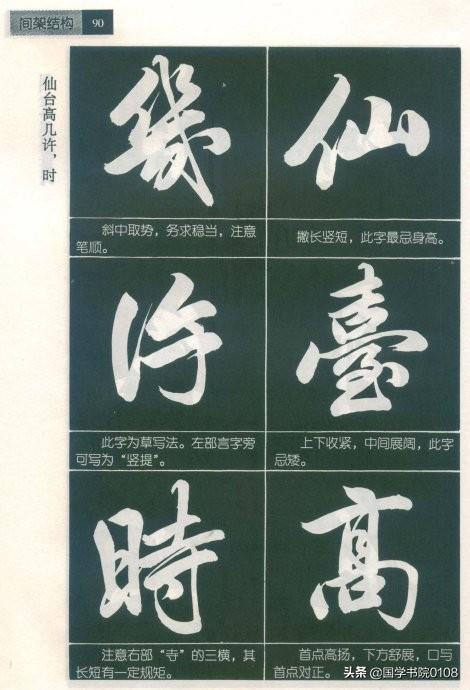 间架结构 90
仙台高几许，时
仙
撇长竖短，此字最忌身高。
臺
上下收紧，中间展阔，此字
忌矮。
高
首点高扬，下方舒展，口与
首点对正。
幾
斜中取势，务求稳当，注意
笔顺。
许
此字为草写法。左部言字旁
可写为“竖提”。
時
注意右部“寺”的三横，其
长短有一定规矩。
头条 @国学书院0108